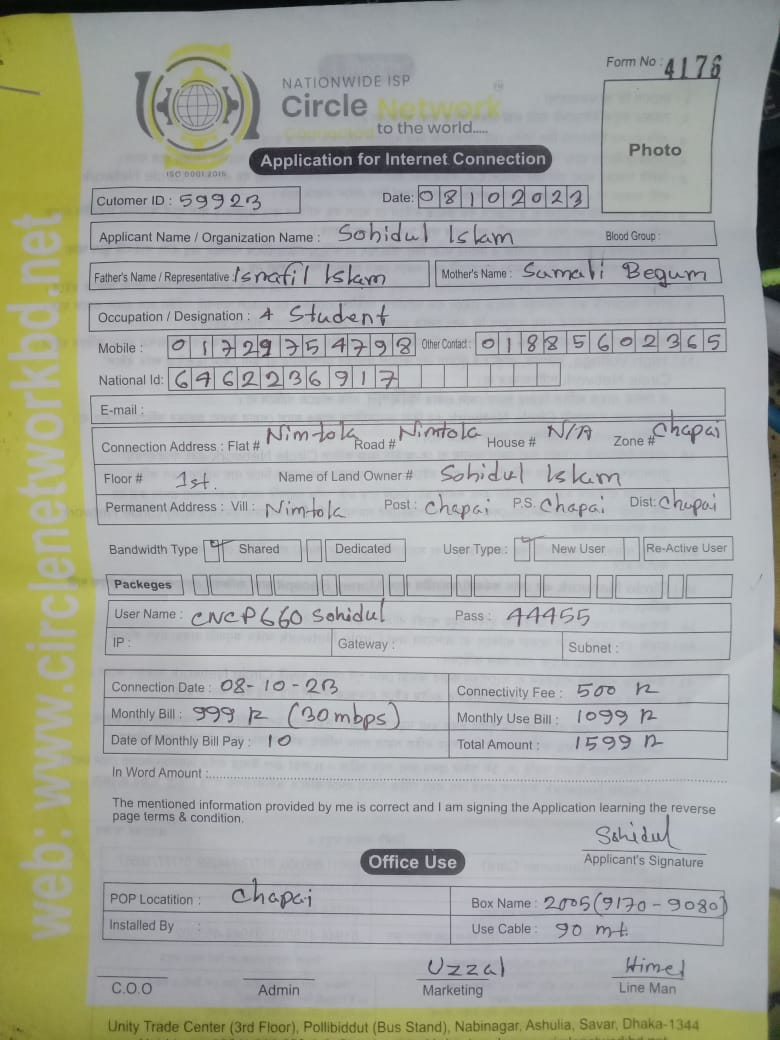 Form No : 4176
NATIONWIDE ISP
Circle Network
Connected to the world.....
ISO 9001:2015
Photo
Application for Internet Connection
Cutomer ID : 59923
Date: 08102023
Applicant Name / Organization Name : Sohidul Islam Blood Group :
Father's Name / Representative : Israfil Islam Mother's Name : Sumali Begum
Occupation / Designation : A Student
Mobile : 01729754798 Other Contact : 01885602365
National Id: 6462236917
E-mail :
Connection Address : Flat # Nimtola Road # Nimtola House # N/A Zone # Chapai
Floor # 1st. Name of Land Owner # Sohidul Islam
Permanent Address : Vill : Nimtola Post : Chapai P.S. Chapai Dist: Chapai
Bandwidth Type Shared Dedicated User Type : New User Re-Active User
Packeges
User Name : CNCP660 Sohidul Pass : 44455
IP : Gateway : Subnet :
Connection Date : 08-10-23 Connectivity Fee : 500 
Monthly Bill : 999 (30mbps) Monthly Use Bill : 1099
Date of Monthly Bill Pay : 10 Total Amount : 1599
In Word Amount :
The mentioned information provided by me is correct and I am signing the Application learning the reverse
page terms & condition.
Sohidul
Applicant's Signature
Office Use
POP Locatition : Chapai Box Name : 2005(9170-9080)
Installed By : Use Cable : 90 mt.
Uzzal Himel
C.O.O Admin Marketing Line Man
Unity Trade Center (3rd Floor), Pollibiddut (Bus Stand), Nabinagar, Ashulia, Savar, Dhaka-1344
web: www.circlenetworkbd.net